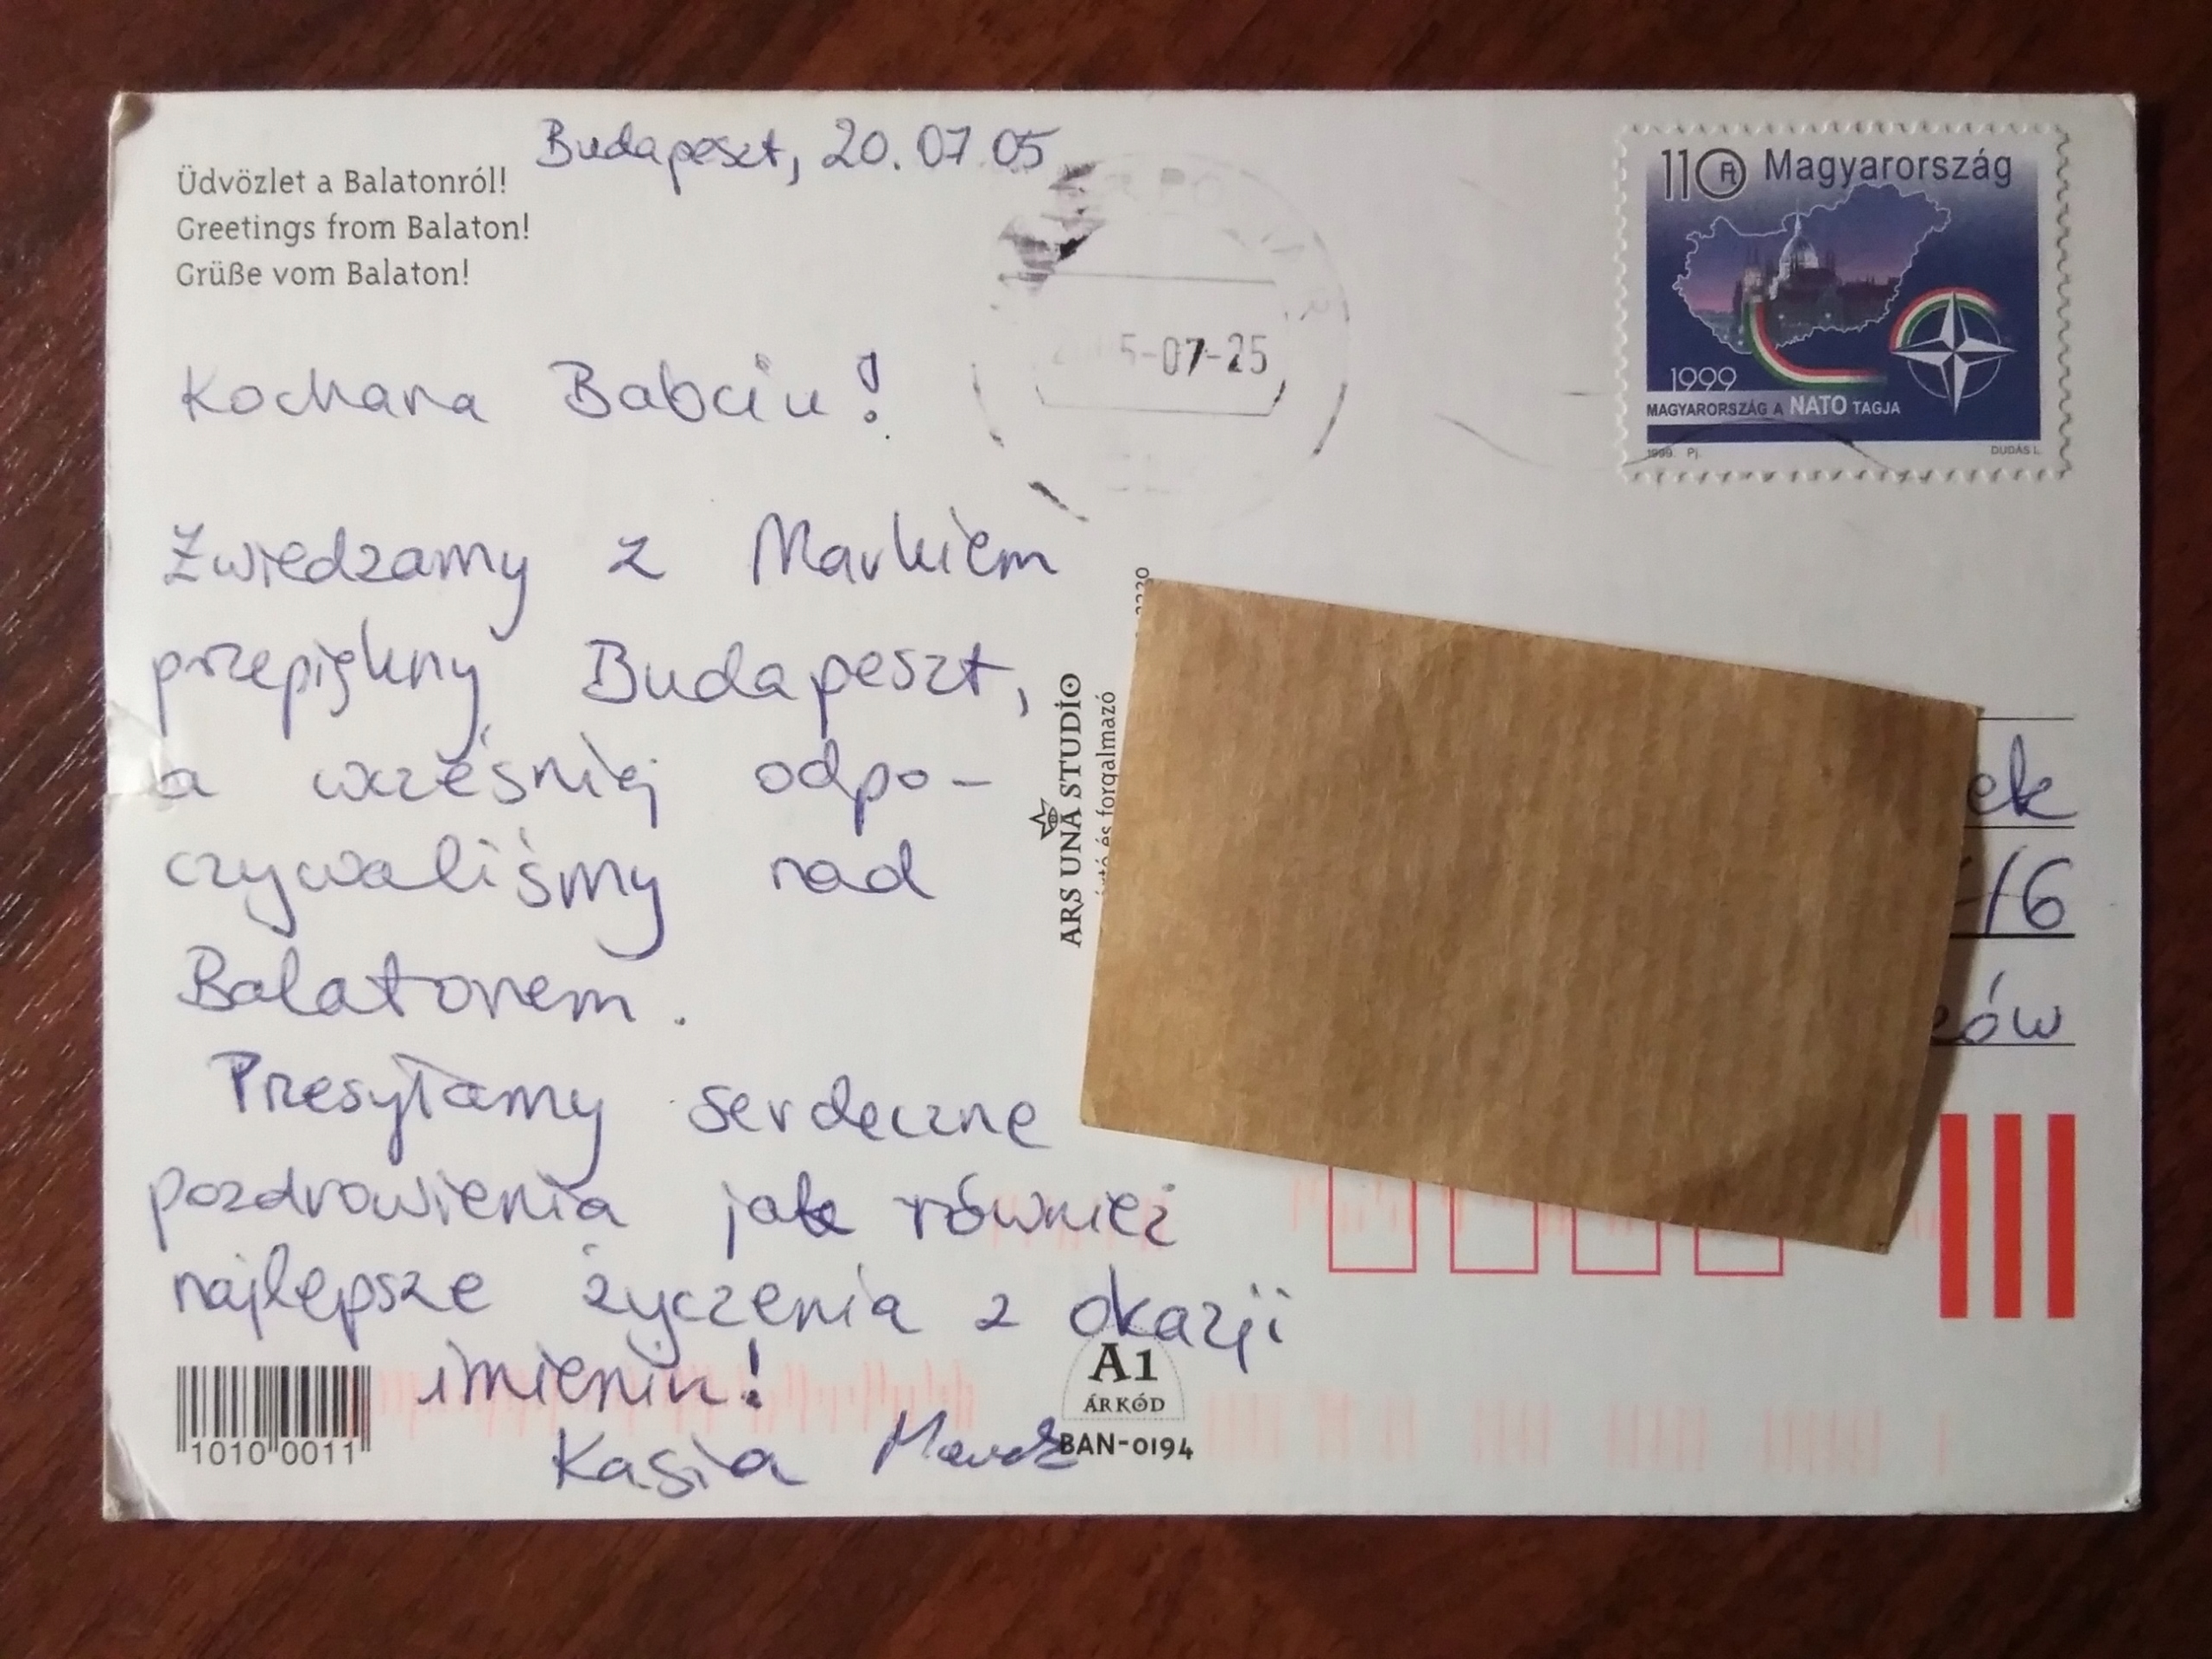 Budapeszt, 20.07.05
Üdvözlet a Balatonról!
Greetings from Balaton!
Grüße vom Balaton!
Kochana Babciu!
Zwiedzamy z Markiem
przepiękny Budapeszt,
a wcześniej odpo-
czywaliśmy nad
Balatonem.
Przesyłamy serdeczne
pozdrowienia jak również
najlepsze życzenia z okazji
imienin!
Kasia Marek
1010 0011
5-07-25
ARS UNA STUDIO
és forgalmazó
A1
ÁRKÓD
BAN-0194
110 Ft Magyarország
1999
MAGYARORSZÁG A NATO TAGJA
1999. Pj. DUDÁS L.
ek
/6
ów